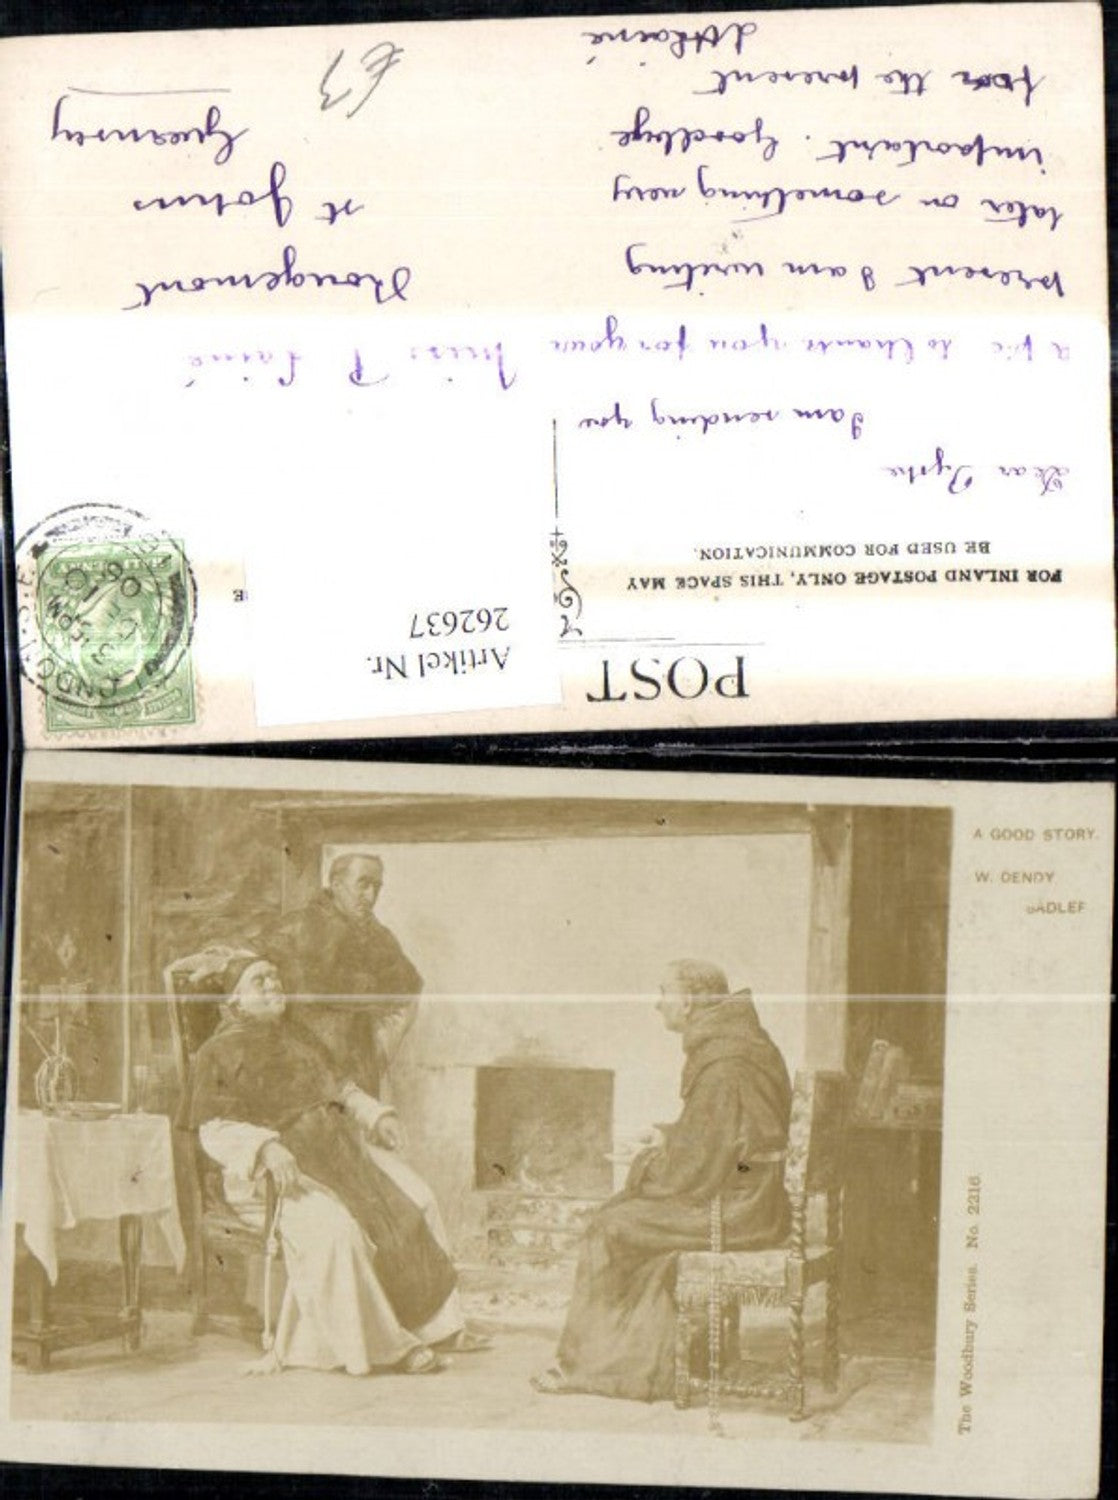 POST
Artikel Nr.
262637
FOR INLAND POSTAGE ONLY, THIS SPACE MAY
BE USED FOR COMMUNICATION.
Dear
I am sending you
a p.c. to thank you for your
present I am writing
later on something very
important. Goodbye
for the present
Miss P Lainé
Rougemont
St Johns
Guernsey
£3
HALFPENNY
LONDON. S.E.
3.15PM
08
A GOOD STORY.
W. DENDY
SADLER
The Woodbury Series. No. 2216